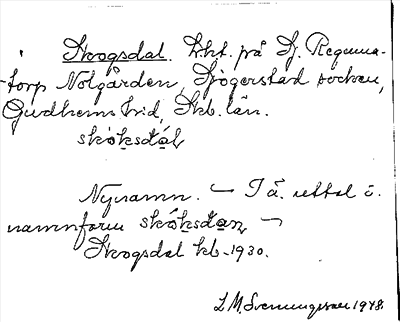 Skogsdal. Lht. på Dj. Reguma-
torp Nolgården, Sjogerstad socken,
Gudhems hd, Skb. län.
skoksdal
Nynamn. – I ä. uttal o.
namnform skoksdan –
Skogsdal kb. 1930.
L M. Svenungsson 1948.